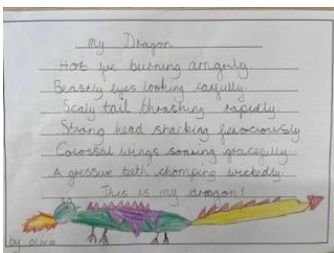 My Dragon
Hot fire burning arngerly.
Beastly eyes looking carfully.
Scaly tail thrashing rapidly
Strong head shacking ferociously
Colossal wings soaring gracefully.
A gressive teeth chomping wickedly.
This is my dragon!
by Olive